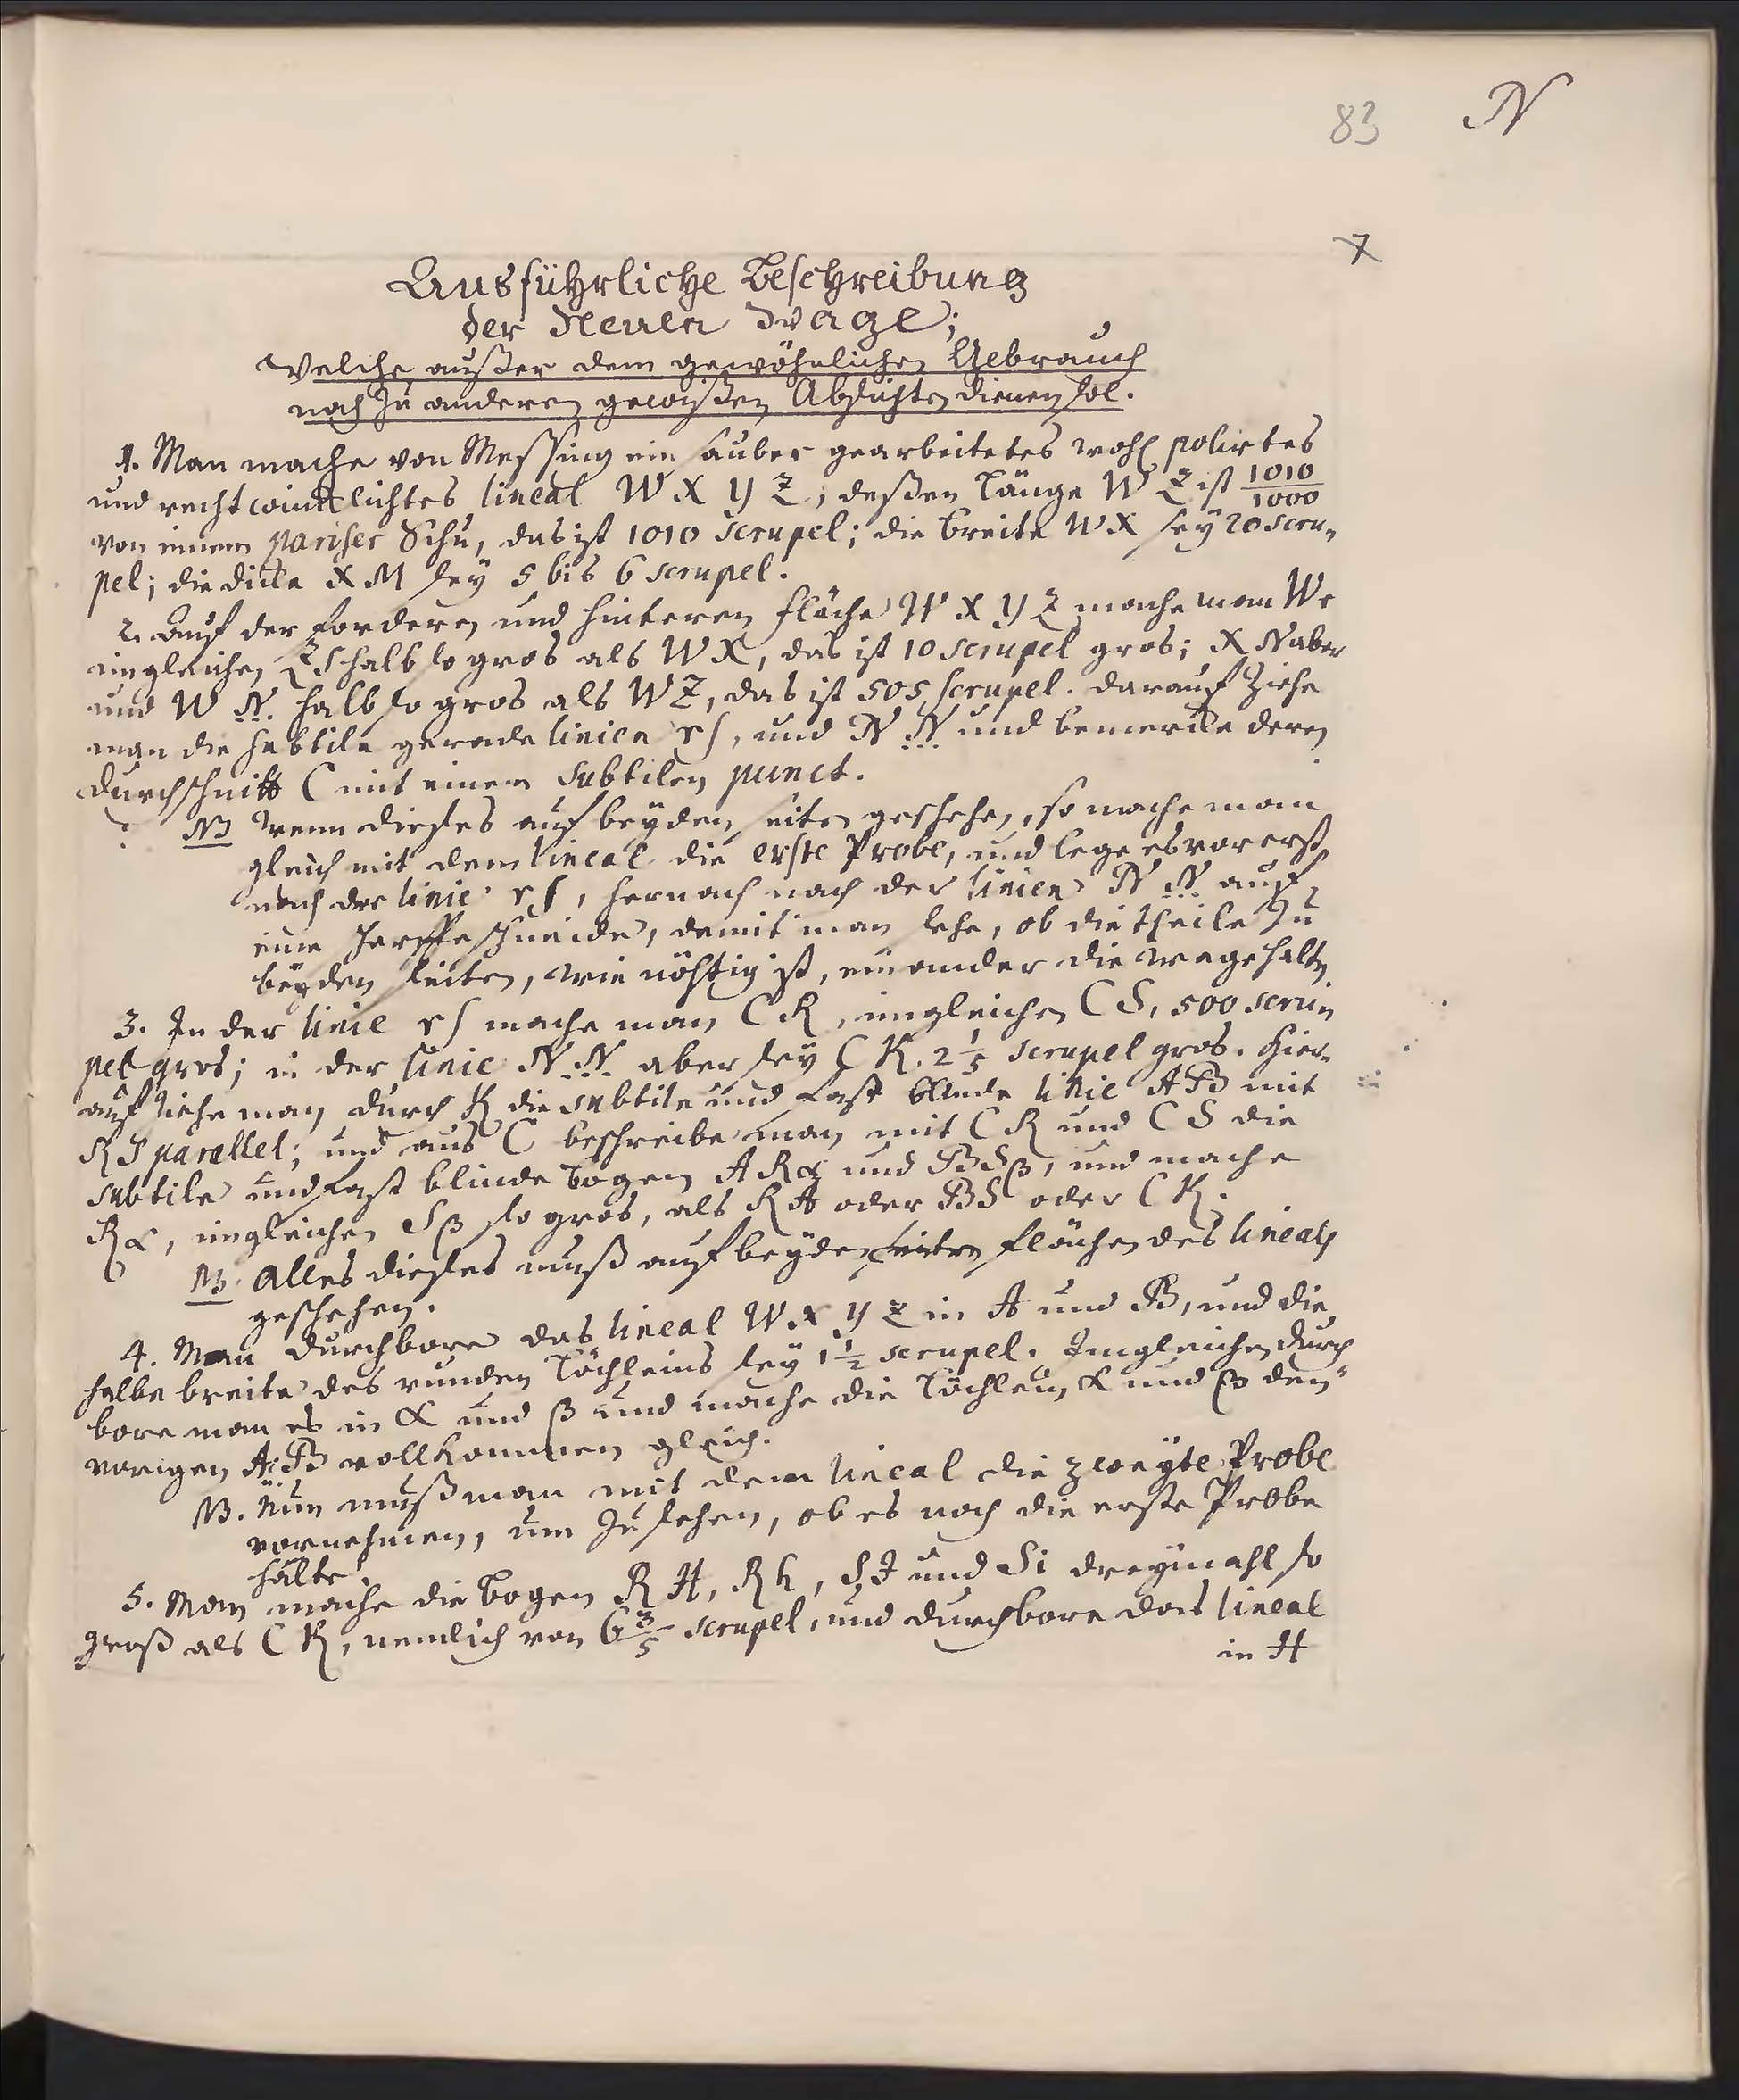 83 N
7
Ausführliche Beschreibung
der Neuen Wage;
Welche außer dem gewöhnlichen Gebrauch
noch zu anderen gewißen Absichten dienen sol.
1. Man mache von Messing ein sauber gearbeitetes wohl polirtes
und rechtwincklichtes lineal W X Y Z, deßen Länge W Z ist 1010/1000
von einem pariser Schu, das ist 1010 scrupel; die breite W X sey 20 scru-
pel; die dicke X M sey 5 bis 6 scrupel.
2. Auf der forderen und hinteren fläche W X Y Z mache man Wr
imgleichen Zs halb so gros als W X, das ist 10 scrupel gros; X N aber
und W N halb so gros als W Z, das ist 505 scrupel. darauf ziehe
man die subtile gerade linien rs, und N N und bemercke deren
durchschnitt C mit einem subtilen punct.
NB Wenn dieses auf beyden seiten geschehen, so mache man
gleich mit dem lineal die erste Probe, und lege es vorerst
nach der linie rs, hernach nach der linien N N auf
eine scharffe schneide, damit man sehe, ob die theile zu
beyden seiten, wie nöhtig ist, einander die wage halten
3. In der linie rs mache man C R, imgleichen C S, 500 scru-
pel gros; in der linie N N aber sey C K. 2 1/5 scrupel gros. Hier-
auf ziehe man durch K die subtile und fast blinde linie A B mit
R S parallel; und aus C beschreibe man mit C R und C S die
subtile und fast blinde bogen A R α und B S β, und mache
R α, imgleichen S β so gros, als R A oder B S oder C K.
NB. Alles dieses muß auf beyden seiten flächen des lineals
geschehen.
4. Man durchbore das lineal W X Y Z in A und B, und die
halbe breite des runden Löchleins sey 1 1/2 scrupel. Imgleichen durch
bore man es in α und β und mache die Löchlein α und β den
vorigen A. B vollkommen gleich.
NB. Nun muß man mit dem lineal die zweyte Probe
vornehmen, um zu sehen, ob es noch die erste Probe
halte.
5. Man mache die bogen R H, R h, S I und S i dreymahl so
groß als C K, nemlich von 6 3/5 scrupel, und durchbore das lineal
in H